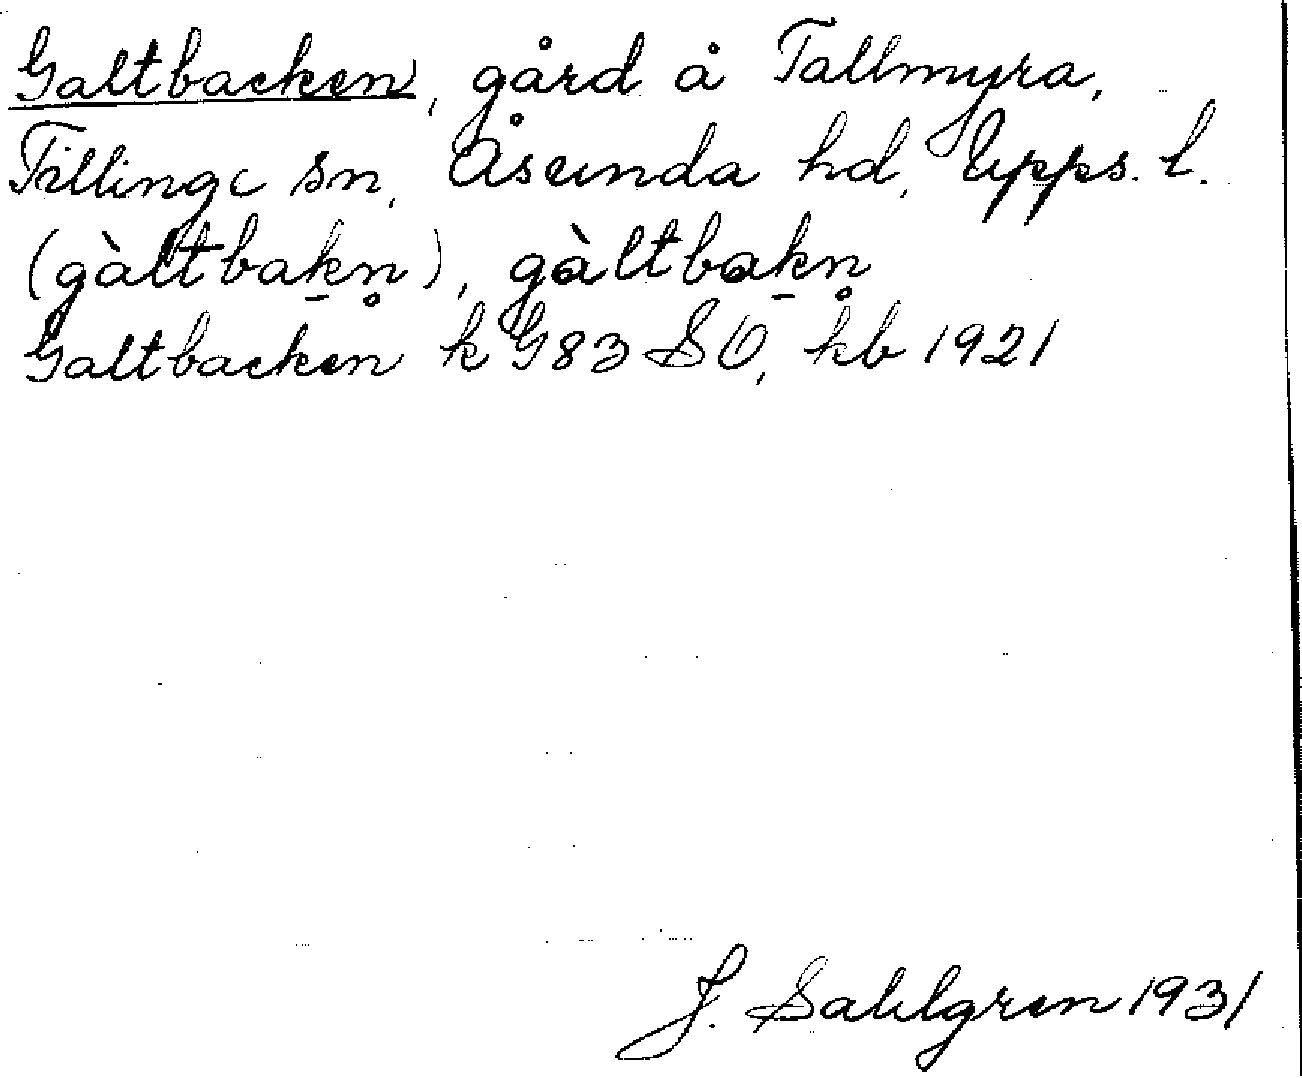 Galtbacken, gård å Tallmyra,
Tillinge sn, Åsunda hd, Upps. l.
(gàltbak̠n̥), gàltbak̠n̥
Galtbacken k G83 SO, kb 1921
J. Sahlgren 1931